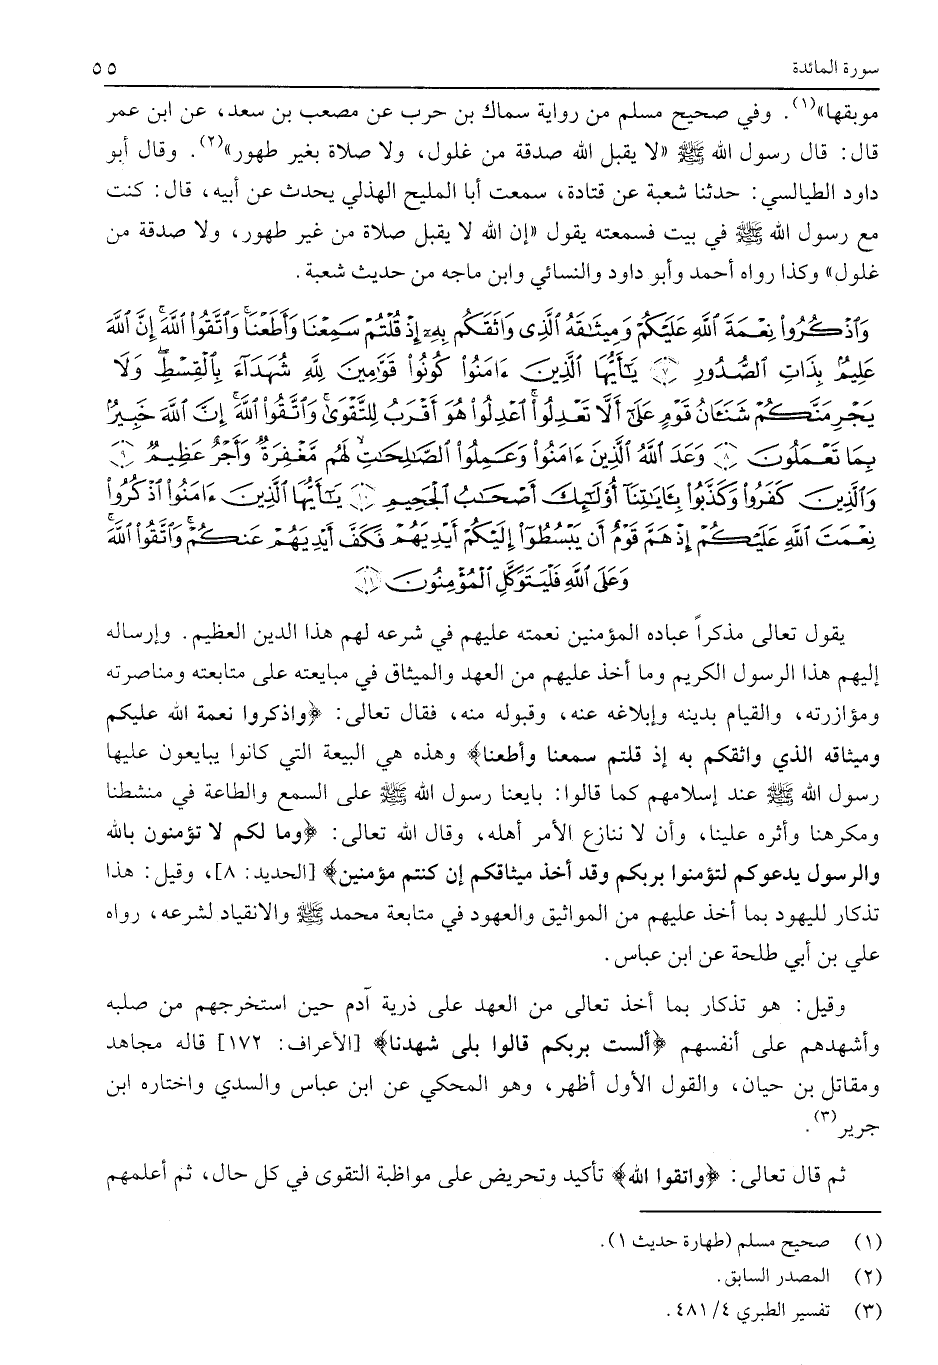 سورة المائدة ٥٥
موبقها»(١). وفي صحيح مسلم من رواية سماك بن حرب عن مصعب بن سعد، عن ابن عمر
قال: قال رسول الله ﷺ «لا يقبل الله صدقة من غلول، ولا صلاة بغير طهور»(٢). وقال أبو
داود الطيالسي: حدثنا شعبة عن قتادة، سمعت أبا المليح الهذلي يحدث عن أبيه، قال: كنت
مع رسول الله ﷺ في بيت فسمعته يقول «إن الله لا يقبل صلاة من غير طهور، ولا صدقة من
غلول» وكذا رواه أحمد وأبو داود والنسائي وابن ماجه من حديث شعبة.
وَٱذْكُرُوا۟ نِعْمَةَ ٱللَّهِ عَلَيْكُمْ وَمِيثَـٰقَهُ ٱلَّذِى وَاثَقَكُم بِهِۦٓ إِذْ قُلْتُمْ سَمِعْنَا وَأَطَعْنَا ۖ وَٱتَّقُوا۟ ٱللَّهَ ۚ إِنَّ ٱللَّهَ
عَلِيمٌۢ بِذَاتِ ٱلصُّدُورِ ﴿٧﴾ يَـٰٓأَيُّهَا ٱلَّذِينَ ءَامَنُوا۟ كُونُوا۟ قَوَّٰمِينَ لِلَّهِ شُهَدَآءَ بِٱلْقِسْطِ ۖ وَلَا
يَجْرِمَنَّكُمْ شَنَـَٔانُ قَوْمٍ عَلَىٰٓ أَلَّا تَعْدِلُوا۟ ۚ ٱعْدِلُوا۟ هُوَ أَقْرَبُ لِلتَّقْوَىٰ ۖ وَٱتَّقُوا۟ ٱللَّهَ ۚ إِنَّ ٱللَّهَ خَبِيرٌۢ
بِمَا تَعْمَلُونَ ﴿٨﴾ وَعَدَ ٱللَّهُ ٱلَّذِينَ ءَامَنُوا۟ وَعَمِلُوا۟ ٱلصَّـٰلِحَـٰتِ ۙ لَهُم مَّغْفِرَةٌ وَأَجْرٌ عَظِيمٌ ﴿٩﴾
وَٱلَّذِينَ كَفَرُوا۟ وَكَذَّبُوا۟ بِـَٔايَـٰتِنَآ أُو۟لَـٰٓئِكَ أَصْحَـٰبُ ٱلْجَحِيمِ ﴿١٠﴾ يَـٰٓأَيُّهَا ٱلَّذِينَ ءَامَنُوا۟ ٱذْكُرُوا۟
نِعْمَتَ ٱللَّهِ عَلَيْكُمْ إِذْ هَمَّ قَوْمٌ أَن يَبْسُطُوٓا۟ إِلَيْكُمْ أَيْدِيَهُمْ فَكَفَّ أَيْدِيَهُمْ عَنكُمْ ۖ وَٱتَّقُوا۟ ٱللَّهَ ۚ
وَعَلَى ٱللَّهِ فَلْيَتَوَكَّلِ ٱلْمُؤْمِنُونَ ﴿١١﴾
يقول تعالى مذكراً عباده المؤمنين نعمته عليهم في شرعه لهم هذا الدين العظيم. وإرساله
إليهم هذا الرسول الكريم وما أخذ عليهم من العهد والميثاق في مبايعته على متابعته ومناصرته
ومؤازرته، والقيام بدينه وإبلاغه عنه، وقبوله منه، فقال تعالى: ﴿واذكروا نعمة الله عليكم
وميثاقه الذي واثقكم به إذ قلتم سمعنا وأطعنا﴾ وهذه هي البيعة التي كانوا يبايعون عليها
رسول الله ﷺ عند إسلامهم كما قالوا: بايعنا رسول الله ﷺ على السمع والطاعة في منشطنا
ومكرهنا وأثره علينا، وأن لا ننازع الأمر أهله، وقال الله تعالى: ﴿وما لكم لا تؤمنون بالله
والرسول يدعوكم لتؤمنوا بربكم وقد أخذ ميثاقكم إن كنتم مؤمنين﴾ [الحديد: ٨]، وقيل: هذا
تذكار لليهود بما أخذ عليهم من المواثيق والعهود في متابعة محمد ﷺ والانقياد لشرعه، رواه
علي بن أبي طلحة عن ابن عباس.
وقيل: هو تذكار بما أخذ تعالى من العهد على ذرية آدم حين استخرجهم من صلبه
وأشهدهم على أنفسهم ﴿ألست بربكم قالوا بلى شهدنا﴾ [الأعراف: ١٧٢] قاله مجاهد
ومقاتل بن حيان، والقول الأول أظهر، وهو المحكي عن ابن عباس والسدي واختاره ابن
جرير(٣).
ثم قال تعالى: ﴿واتقوا الله﴾ تأكيد وتحريض على مواظبة التقوى في كل حال، ثم أعلمهم
(١) صحيح مسلم (طهارة حديث ١).
(٢) المصدر السابق.
(٣) تفسير الطبري ٤/ ٤٨١.